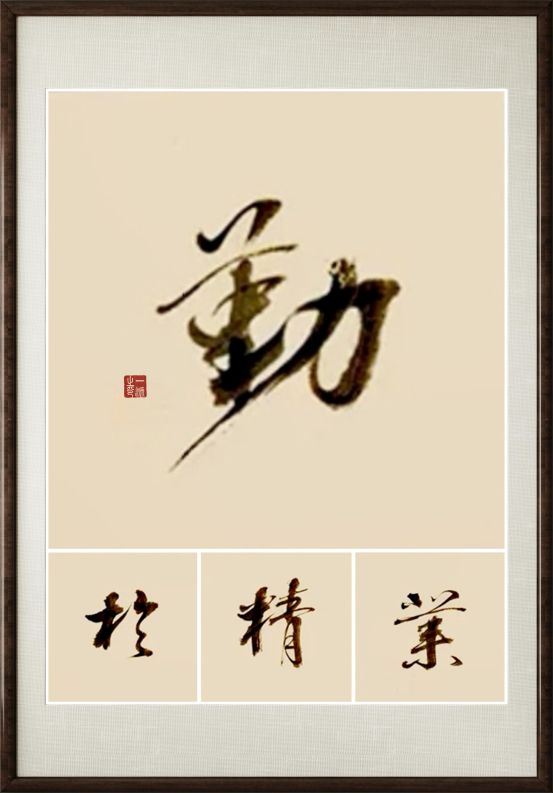 勤
業精於